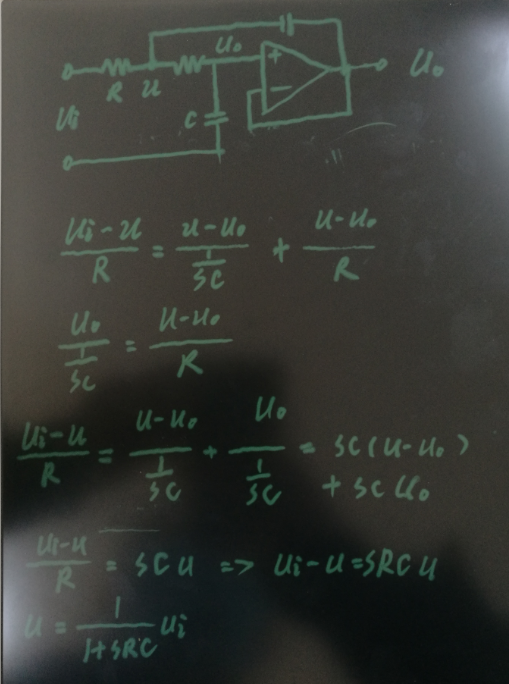 U₀
+
R u
U₀
Ui
C
−
(Ui-u)/R = (u-U₀)/(1/SC) + (u-U₀)/R
U₀/(1/SC) = (u-U₀)/R
(Ui-u)/R = (u-U₀)/(1/SC) + U₀/(1/SC) = SC(u-U₀)
+ SC U₀
(Ui-u)/R = SCu => Ui-u=SRCu
u = 1/(1+SRC) Ui